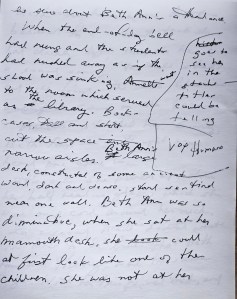 be sure about Beth Ann's attendance
When the end-of-day bell
had rung and the students
had rushed away as if the
school was sinking,
to the room which served
as the library. Book-
cases, tall and
cut the space
narrow aisles. A large
desk, constructed of some ancient
wood, dark and dense, stood
near one wall. Beth Ann was so
diminutive, when she sat at her
mammoth desk, she could
at first look like one of the
children. She was not at her
goes to
see her
in the
to the
could be
falling
Humans